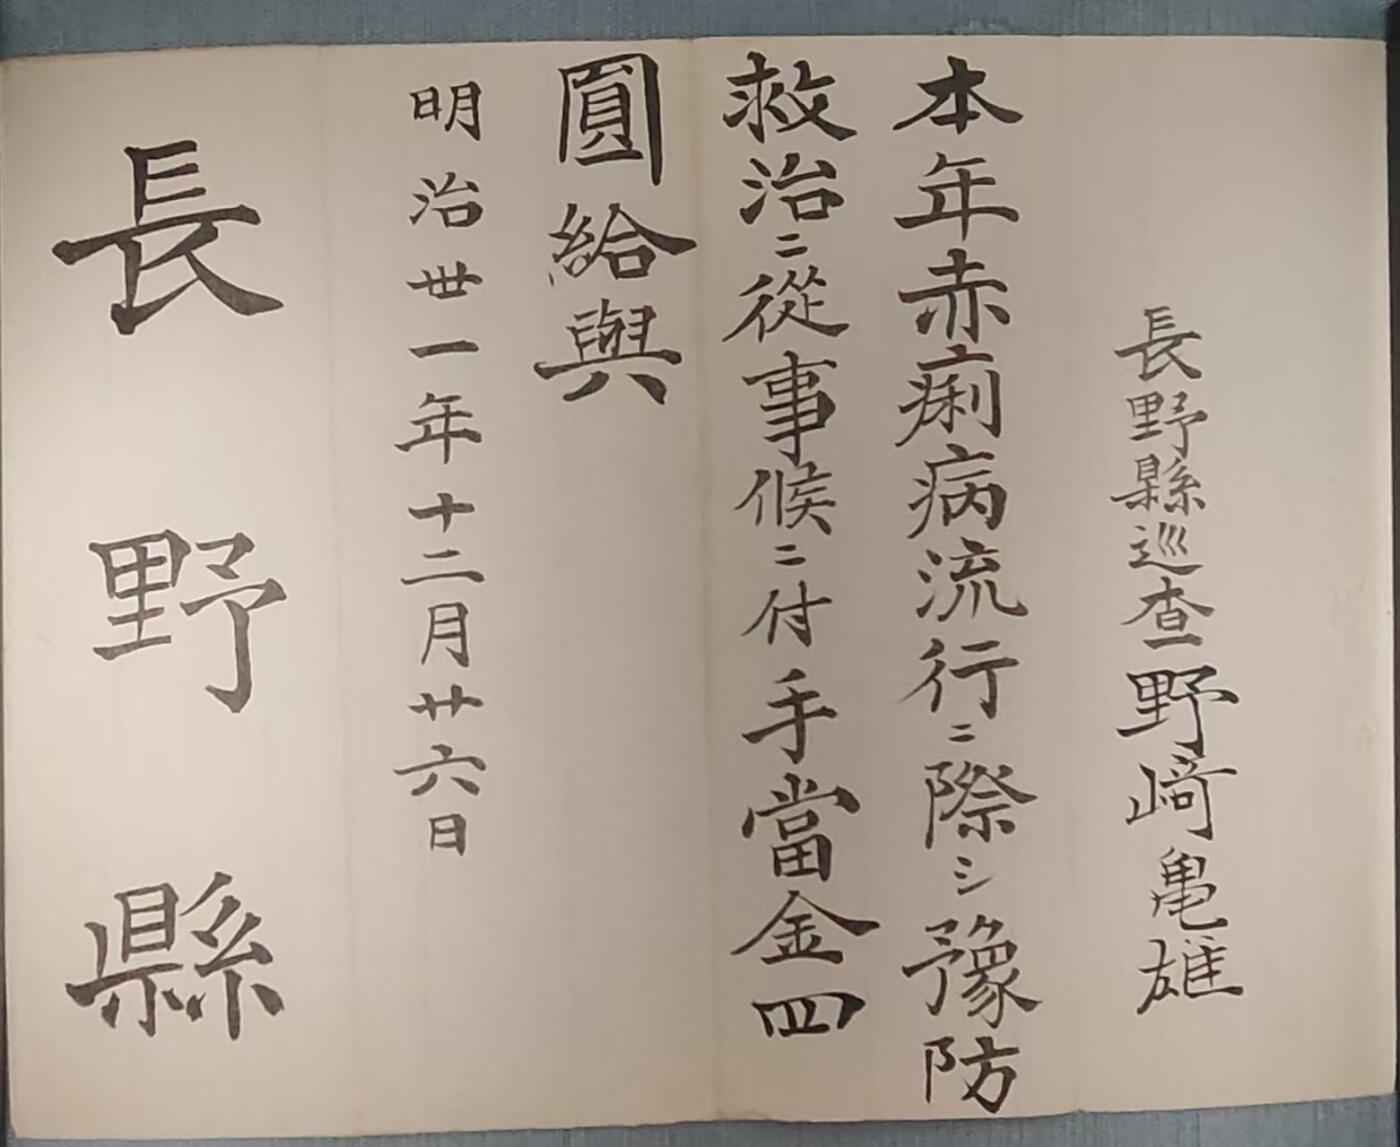 長野縣巡査野﨑亀雄
本年赤痢病流行ニ際シ豫防
救治ニ從事候ニ付手當金四
圓給與
明治丗一年十二月廿六日
長野縣